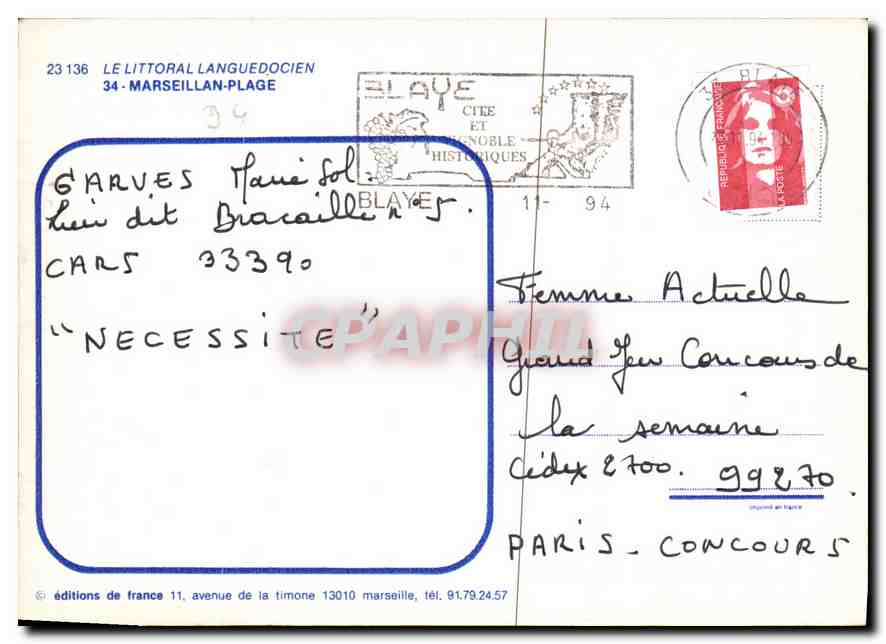 23 136 LE LITTORAL LANGUEDOCIEN
34 - MARSEILLAN-PLAGE
34
BLAYE
CITE
ET
VIGNOBLE
HISTORIQUES
BLAYE 11- 94
REPUBLIQUE FRANÇAISE
LA POSTE
GARVES Marie Sol.
Lieu dit Bracaille n°5.
CARS 33390
"NECESSITE"
CPAPHIL
Femme Actuelle
Grand Jeu Concours de
la semaine
Cédex 2700. 99270.
imprimé en france
PARIS - CONCOURS
© éditions de france 11, avenue de la timone 13010 marseille, tél. 91.79.24.57